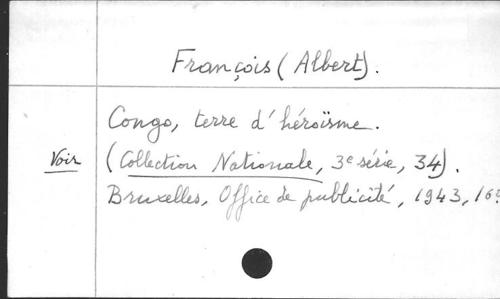 François (Albert).
Congo, terre d'héroïsme.
Voir (Collection Nationale, 3e série, 34).
Bruxelles, Office de publicité, 1943,